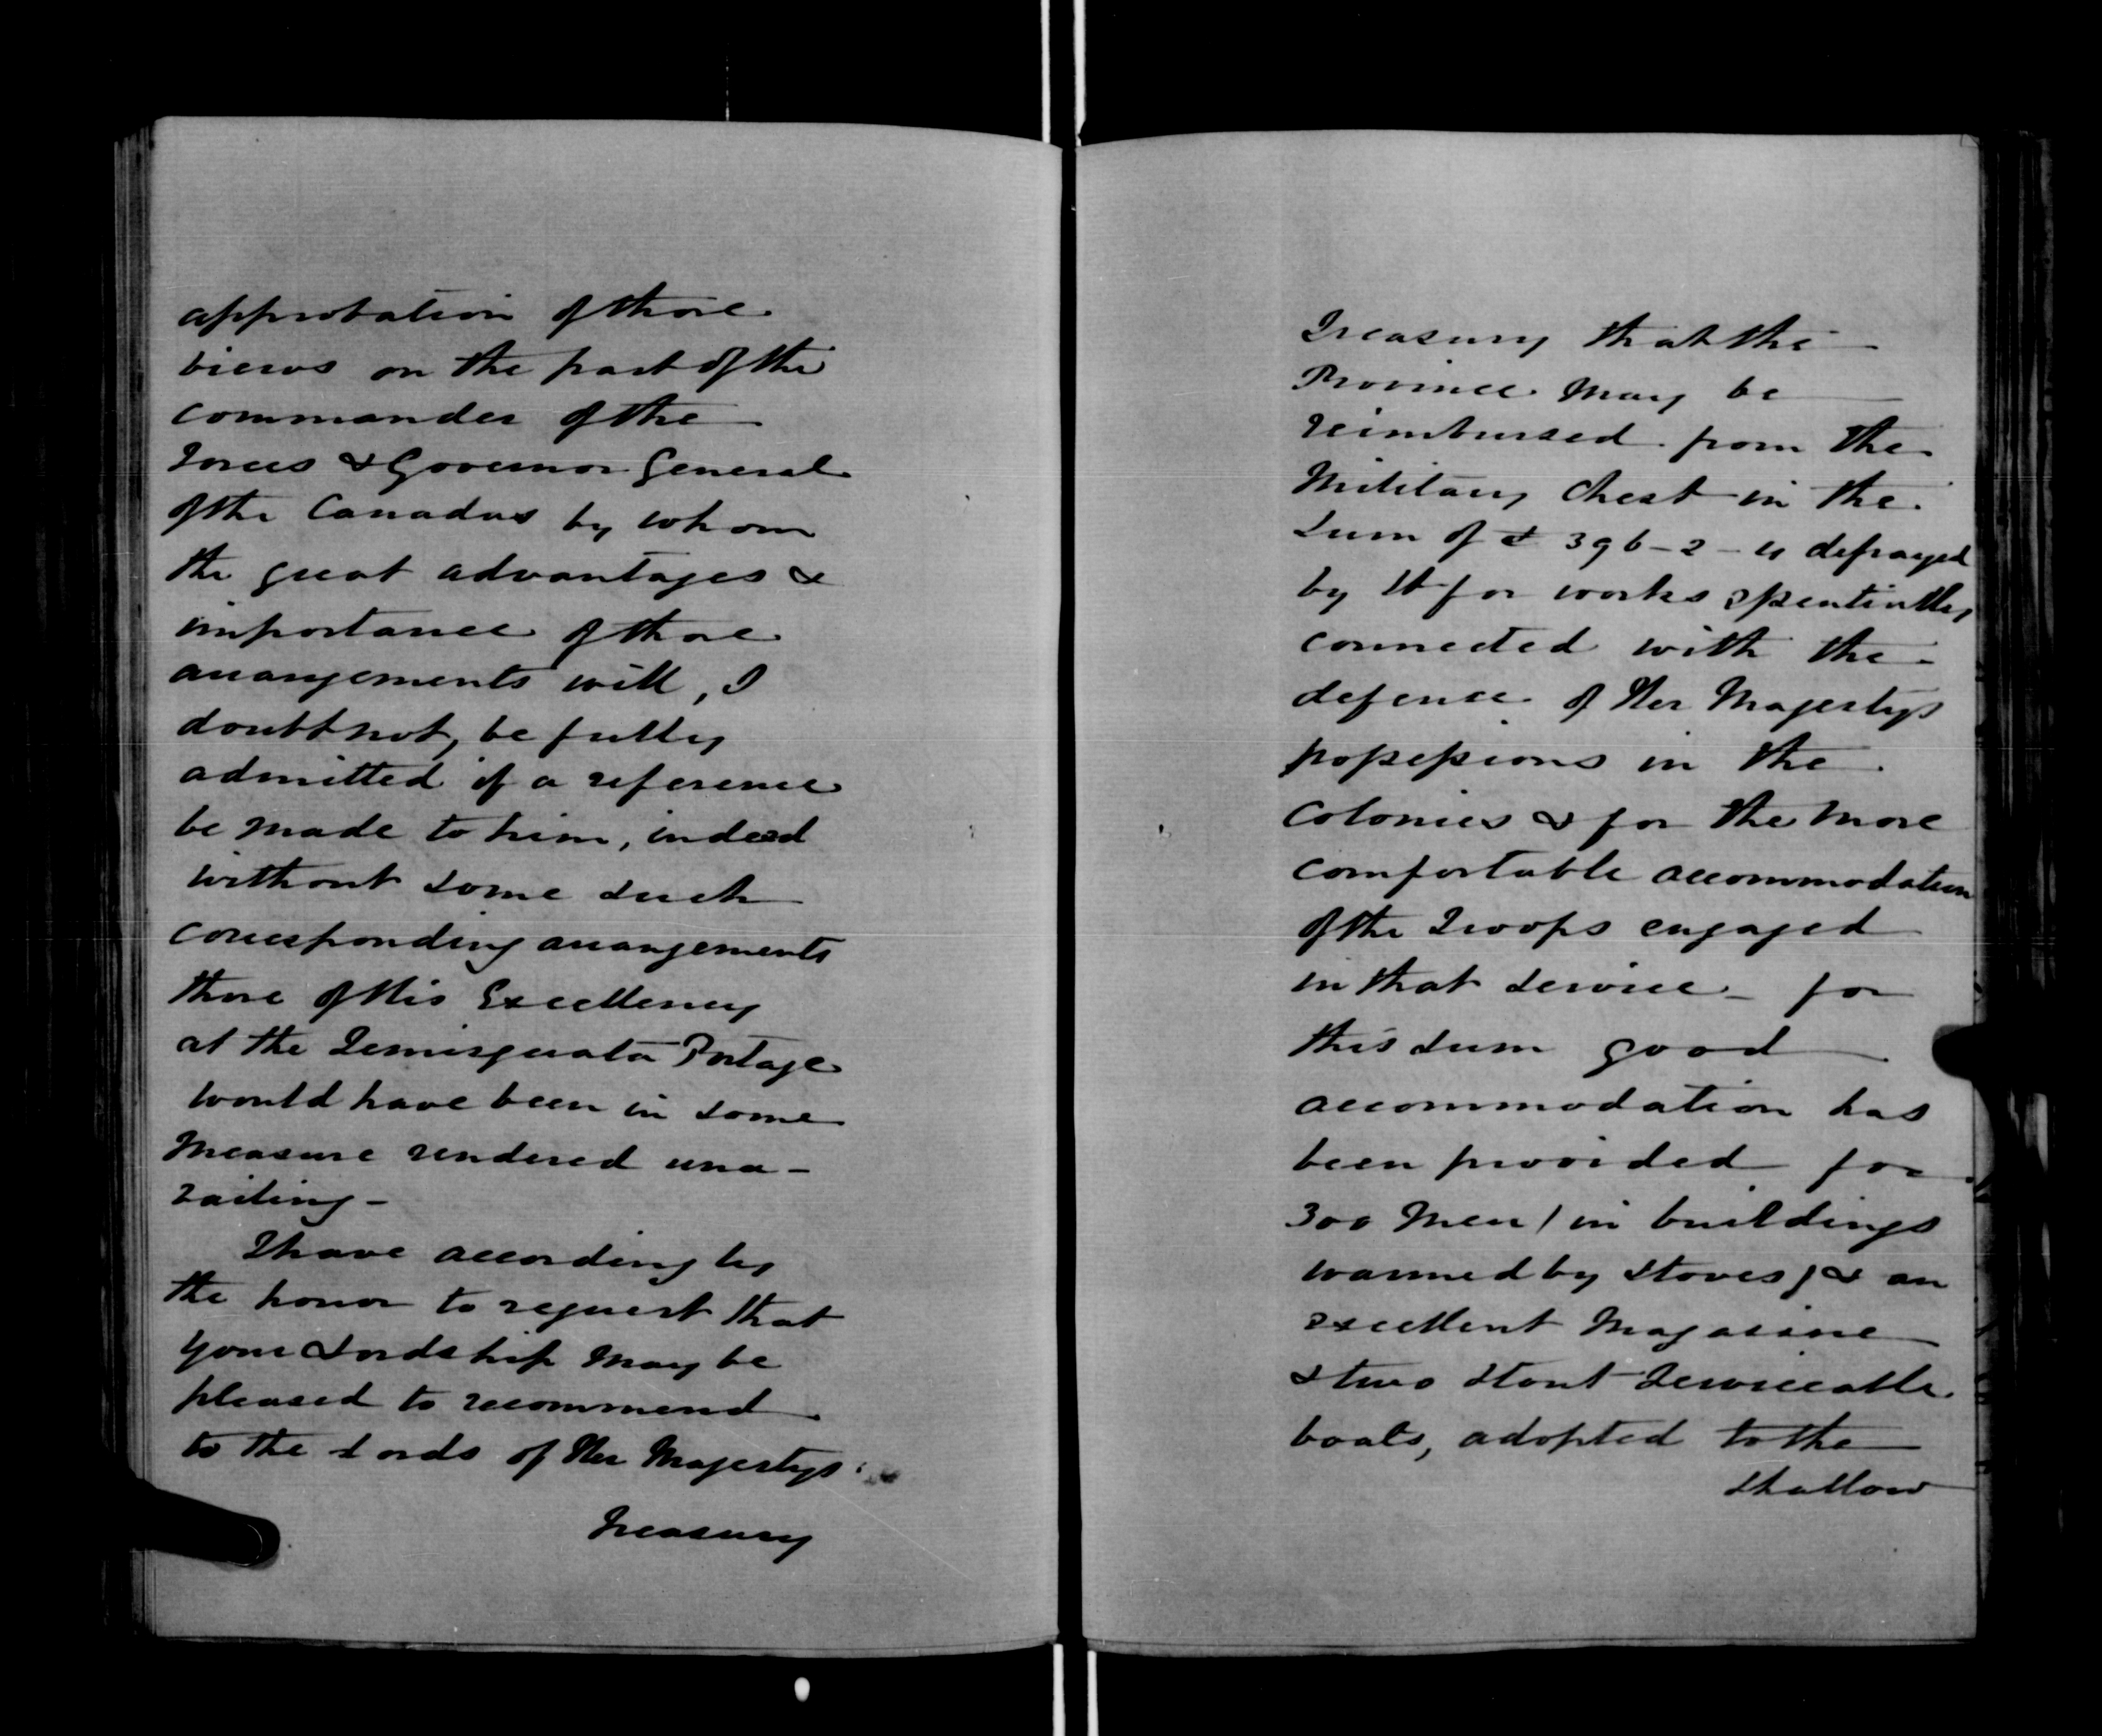 approbation of those
views on the part of the
commander of the
Forces & Governor General
of the Canadas by whom
the great advantages &
importance of those
arrangements will, I
doubt not, be fully
admitted if a reference
be made to him, indeed
without some such
corresponding arrangements
those of His Excellency
at the Temisquata Portage
would have been in some
measure rendered una-
vailing -
I have according by
the honor to request that
your Lordship may be
pleased to recommend
to the Lords of Her Majestys
Treasury
Treasury that the
Province may be
reimbursed from the
Military Chest in the
Sum of £ 396-2-4 defrayed
by it for works
connected with the
defence of Her Majestys
possessions in the
Colonies & for the more
comfortable accommodation
of the Troops engaged
in that service - for
this sum good
accommodation has
been provided for
300 Men / in buildings
warmed by stoves / & an
excellent Magazine
& two stout serviceable
boats, adopted to the
shallow